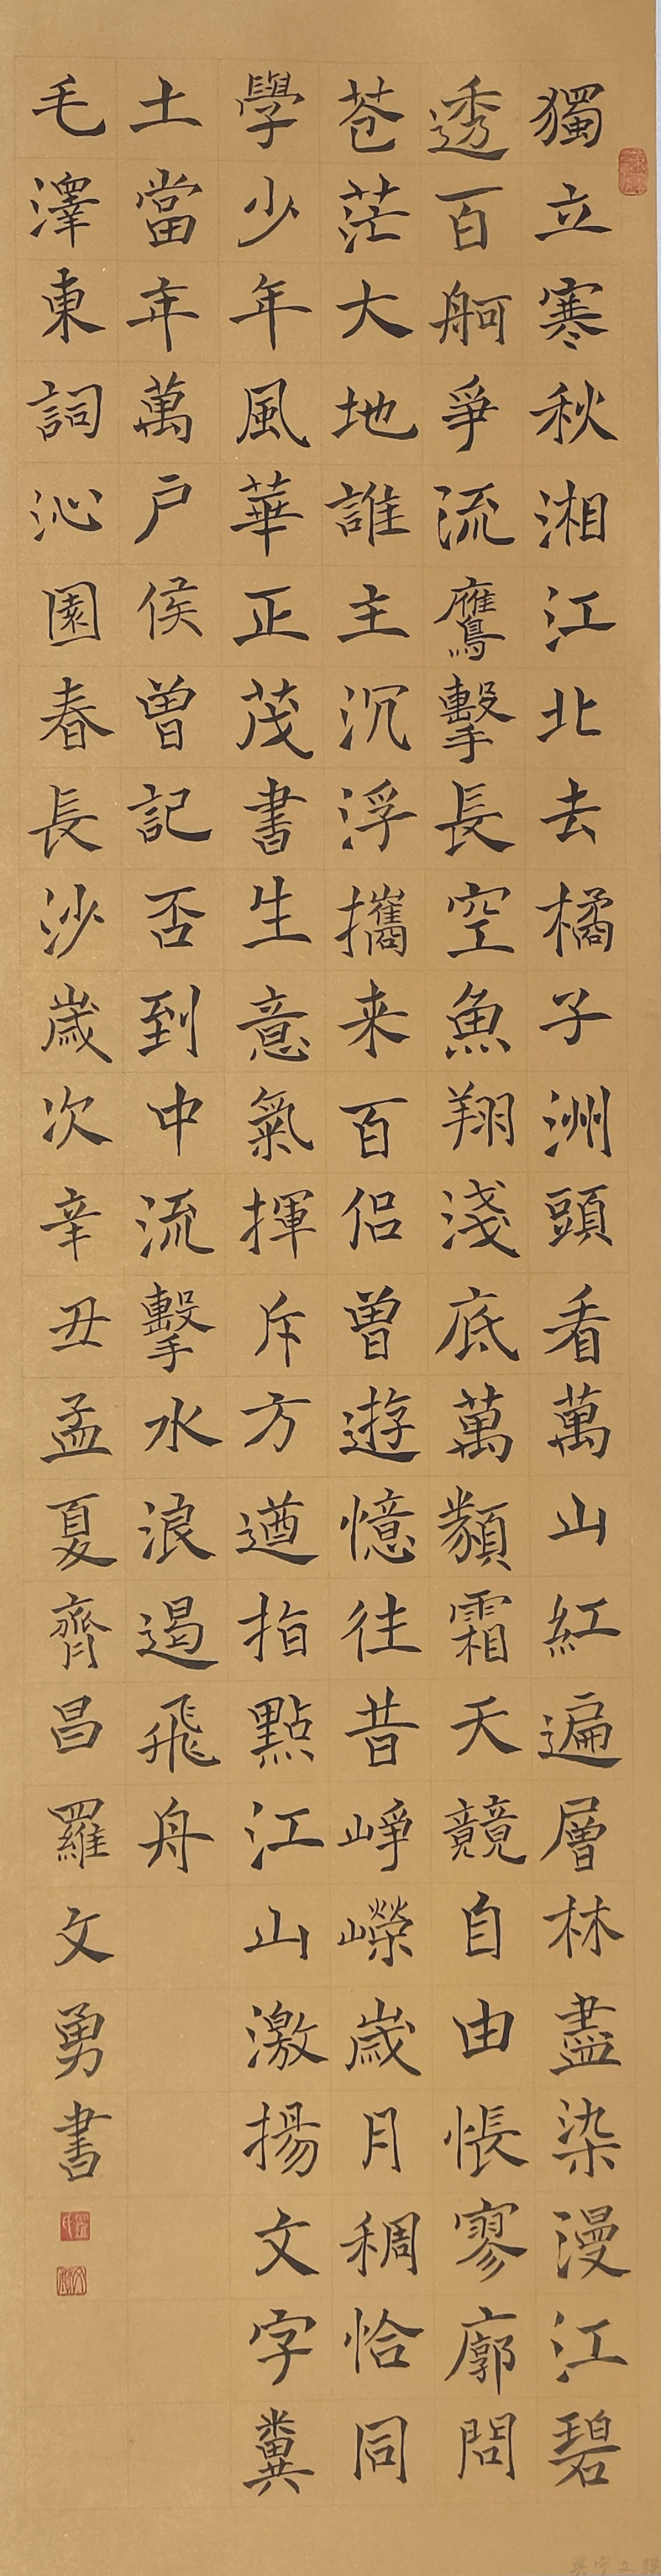 獨立寒秋湘江北去橘子洲頭看萬山紅遍層林盡染漫江碧
透百舸爭流鷹擊長空魚翔淺底萬類霜天競自由悵寥廓問
苍茫大地誰主沉浮攜来百侣曾遊憶往昔崢嶸歲月稠恰同
學少年風華正茂書生意氣揮斥方遒指點江山激揚文字糞
土當年萬户侯曾記否到中流擊水浪遏飛舟
毛澤東詞沁園春長沙歲次辛丑孟夏齊昌羅文勇書